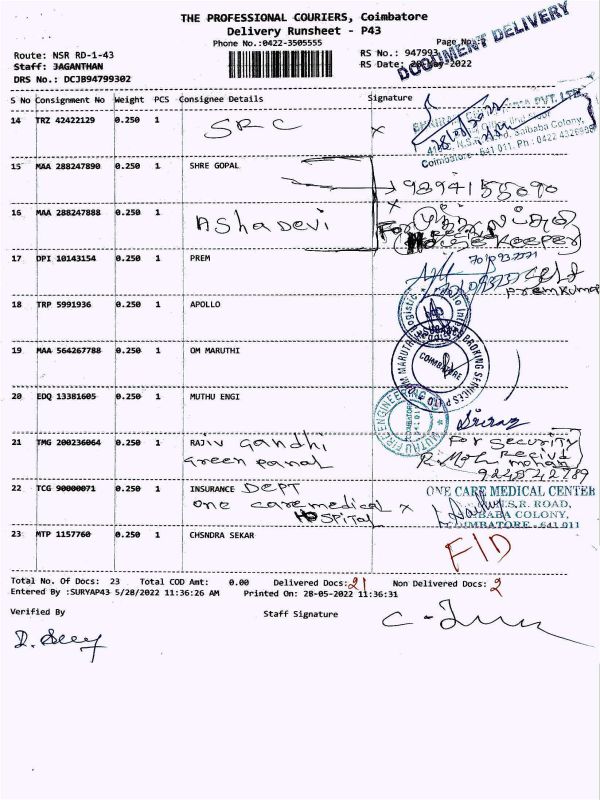 THE PROFESSIONAL COURIERS, Coimbatore
Delivery Runsheet - P43
Phone No.:0422-3505555
Page No
Route: NSR RD-1-43
RS No.: 947993
DOCUMENT DELIVERY
Staff: JAGANTHAN
RS Date: 28-May-2022
DRS No.: DCJB94799302
S No Consignment No Weight PCS Consignee Details Signature
14 TRZ 42422129 0.250 1 SRC
PVT. LTD.
Saibaba Colony,
Coimbatore - 641 011. Ph : 0422
15 MAA 288247890 0.250 1 SHRE GOPAL
16 MAA 288247888 0.250 1 Asha Devi
For
House Keeper
17 DPI 10143154 0.250 1 PREM
Premkumar
18 TRP 5991936 0.250 1 APOLLO
19 MAA 564267788 0.250 1 OM MARUTHI
COIMBATORE
20 EDQ 13381605 0.250 1 MUTHU ENGI
21 TMG 200236064 0.250 1 RAJIV Gandhi
Green Panal
For Security
mohan
22 TCG 90000071 0.250 1 INSURANCE DEPT
One care medical
HOSPITAL
ONE CARE MEDICAL CENTER
N.S.R. ROAD,
SAIBABA COLONY,
COIMBATORE - 641 011
23 MTP 1157760 0.250 1 CHSNDRA SEKAR
F/D
Total No. Of Docs: 23 Total COD Amt: 0.00 Delivered Docs: 21 Non Delivered Docs: 2
Entered By :SURYAP43 5/28/2022 11:36:26 AM Printed On: 28-05-2022 11:36:31
Verified By
Staff Signature